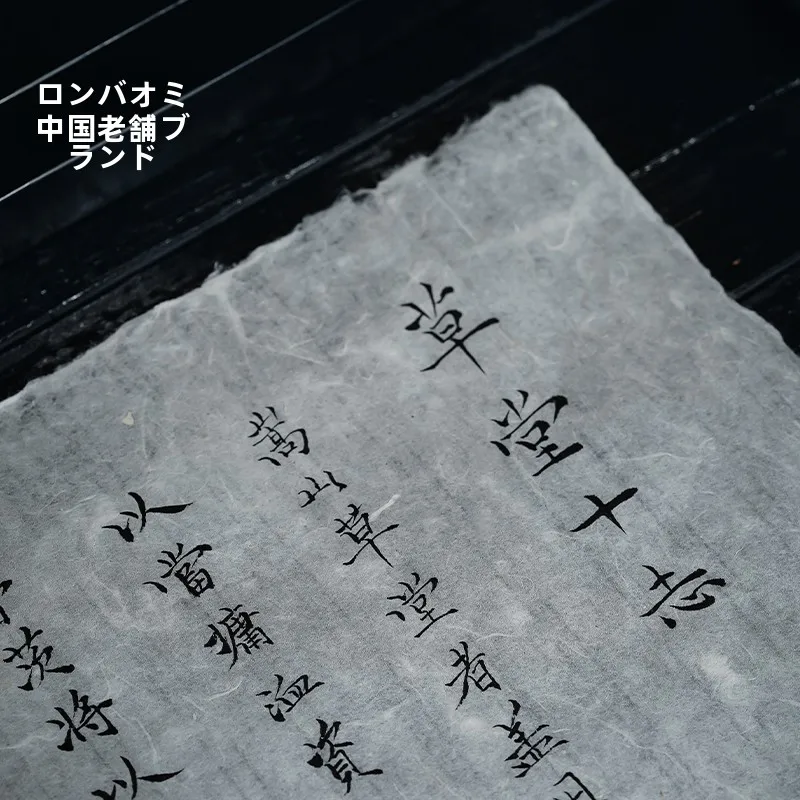 ロンバオミ
中国老舗ブ
ランド
草堂十志
嵩山草堂者盖
以當墉洫資
茨將以